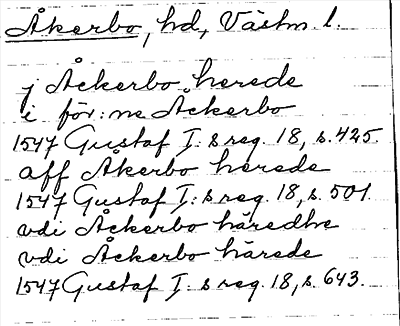 Åkerbo, hd, Västm. l.
j Åckerbo herede
i för:ne Åckerbo
1547 Gustaf I:s reg. 18, s. 425.
aff Åkerbo herede
1547 Gustaf I:s reg. 18, s. 501.
vdi Åckerbo häredhe
vdi Åckerbo härede
1547 Gustaf I:s reg. 18, s. 643.